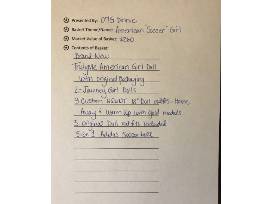 Presented by: OTIS Drive
Basket Theme/Name: American "Soccer" Girl
Market Value of Basket: $250
Contents of Basket:
Brand New
TrulyMe American Girl Doll
with original packaging
Journey Girl Dolls
3 Custom 18" Doll outfits - Home,
Away & Warm up with Gold medals
3 Doll outfits included
Size 3 Adidas Soccer ball